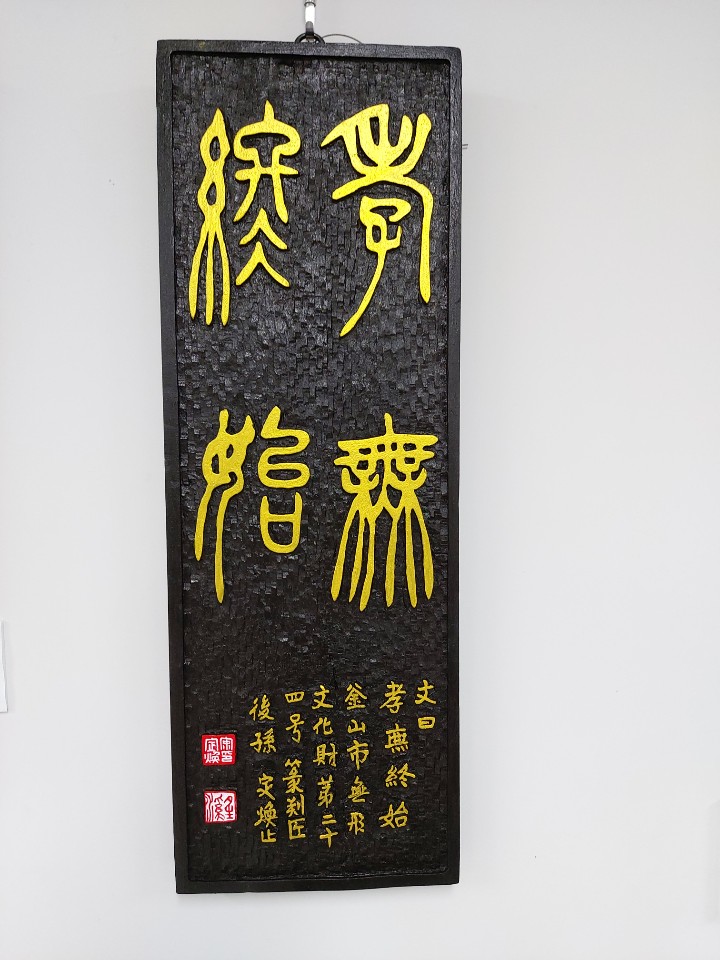 孝無
終始
文曰
孝無終始
釜山市無形
文化財第二十
四号 篆刻匠
後孫 定煥